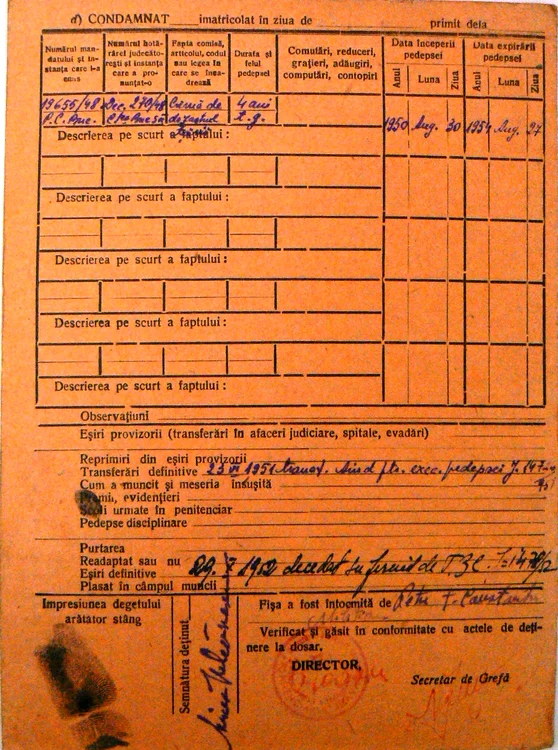 d) CONDAMNAT imatricolat în ziua de primit dela
Numărul man-
datului și in-
stanța care l-a
emis
Numărul hotă-
rârei judecăto-
rești și instanța
care a pro-
nunțat-o
Fapta comisă,
articolul, codul
sau legea în
care se înca-
drează
Durata și
felul
pedepsei
Comutări, reduceri,
grațieri, adăugiri,
computări, contopiri
Data începerii
pedepsei
Data expirării
pedepsei
Anul Luna Ziua Anul Luna Ziua
19655/48 Dec. 270/48 4 ani
1950 Aug. 30 1954 Aug. 27
Descrierea pe scurt a faptului :
Descrierea pe scurt a faptului :
Descrierea pe scurt a faptului :
Descrierea pe scurt a faptului :
Descrierea pe scurt a faptului :
Observațiuni
Eșiri provizorii (transferări în afaceri judiciare, spitale, evadări)
Reprimiri din eșiri provizorii
Transferări definitive 25 VI 1951 transf. Aiud ptr. exec. pedepsei
Cum a muncit și meseria însușită
Premii, evidențieri
Școli urmate în penitenciar
Pedepse disciplinare
Purtarea
Readaptat sau nu
Eșiri definitive 1952 decedat
Plasat în câmpul muncii
Impresiunea degetului
arătător stâng
Semnătura deținut
Fișa a fost întocmită de
Verificat și găsit în conformitate cu actele de deți-
nere la dosar.
DIRECTOR,
Secretar de Grefă